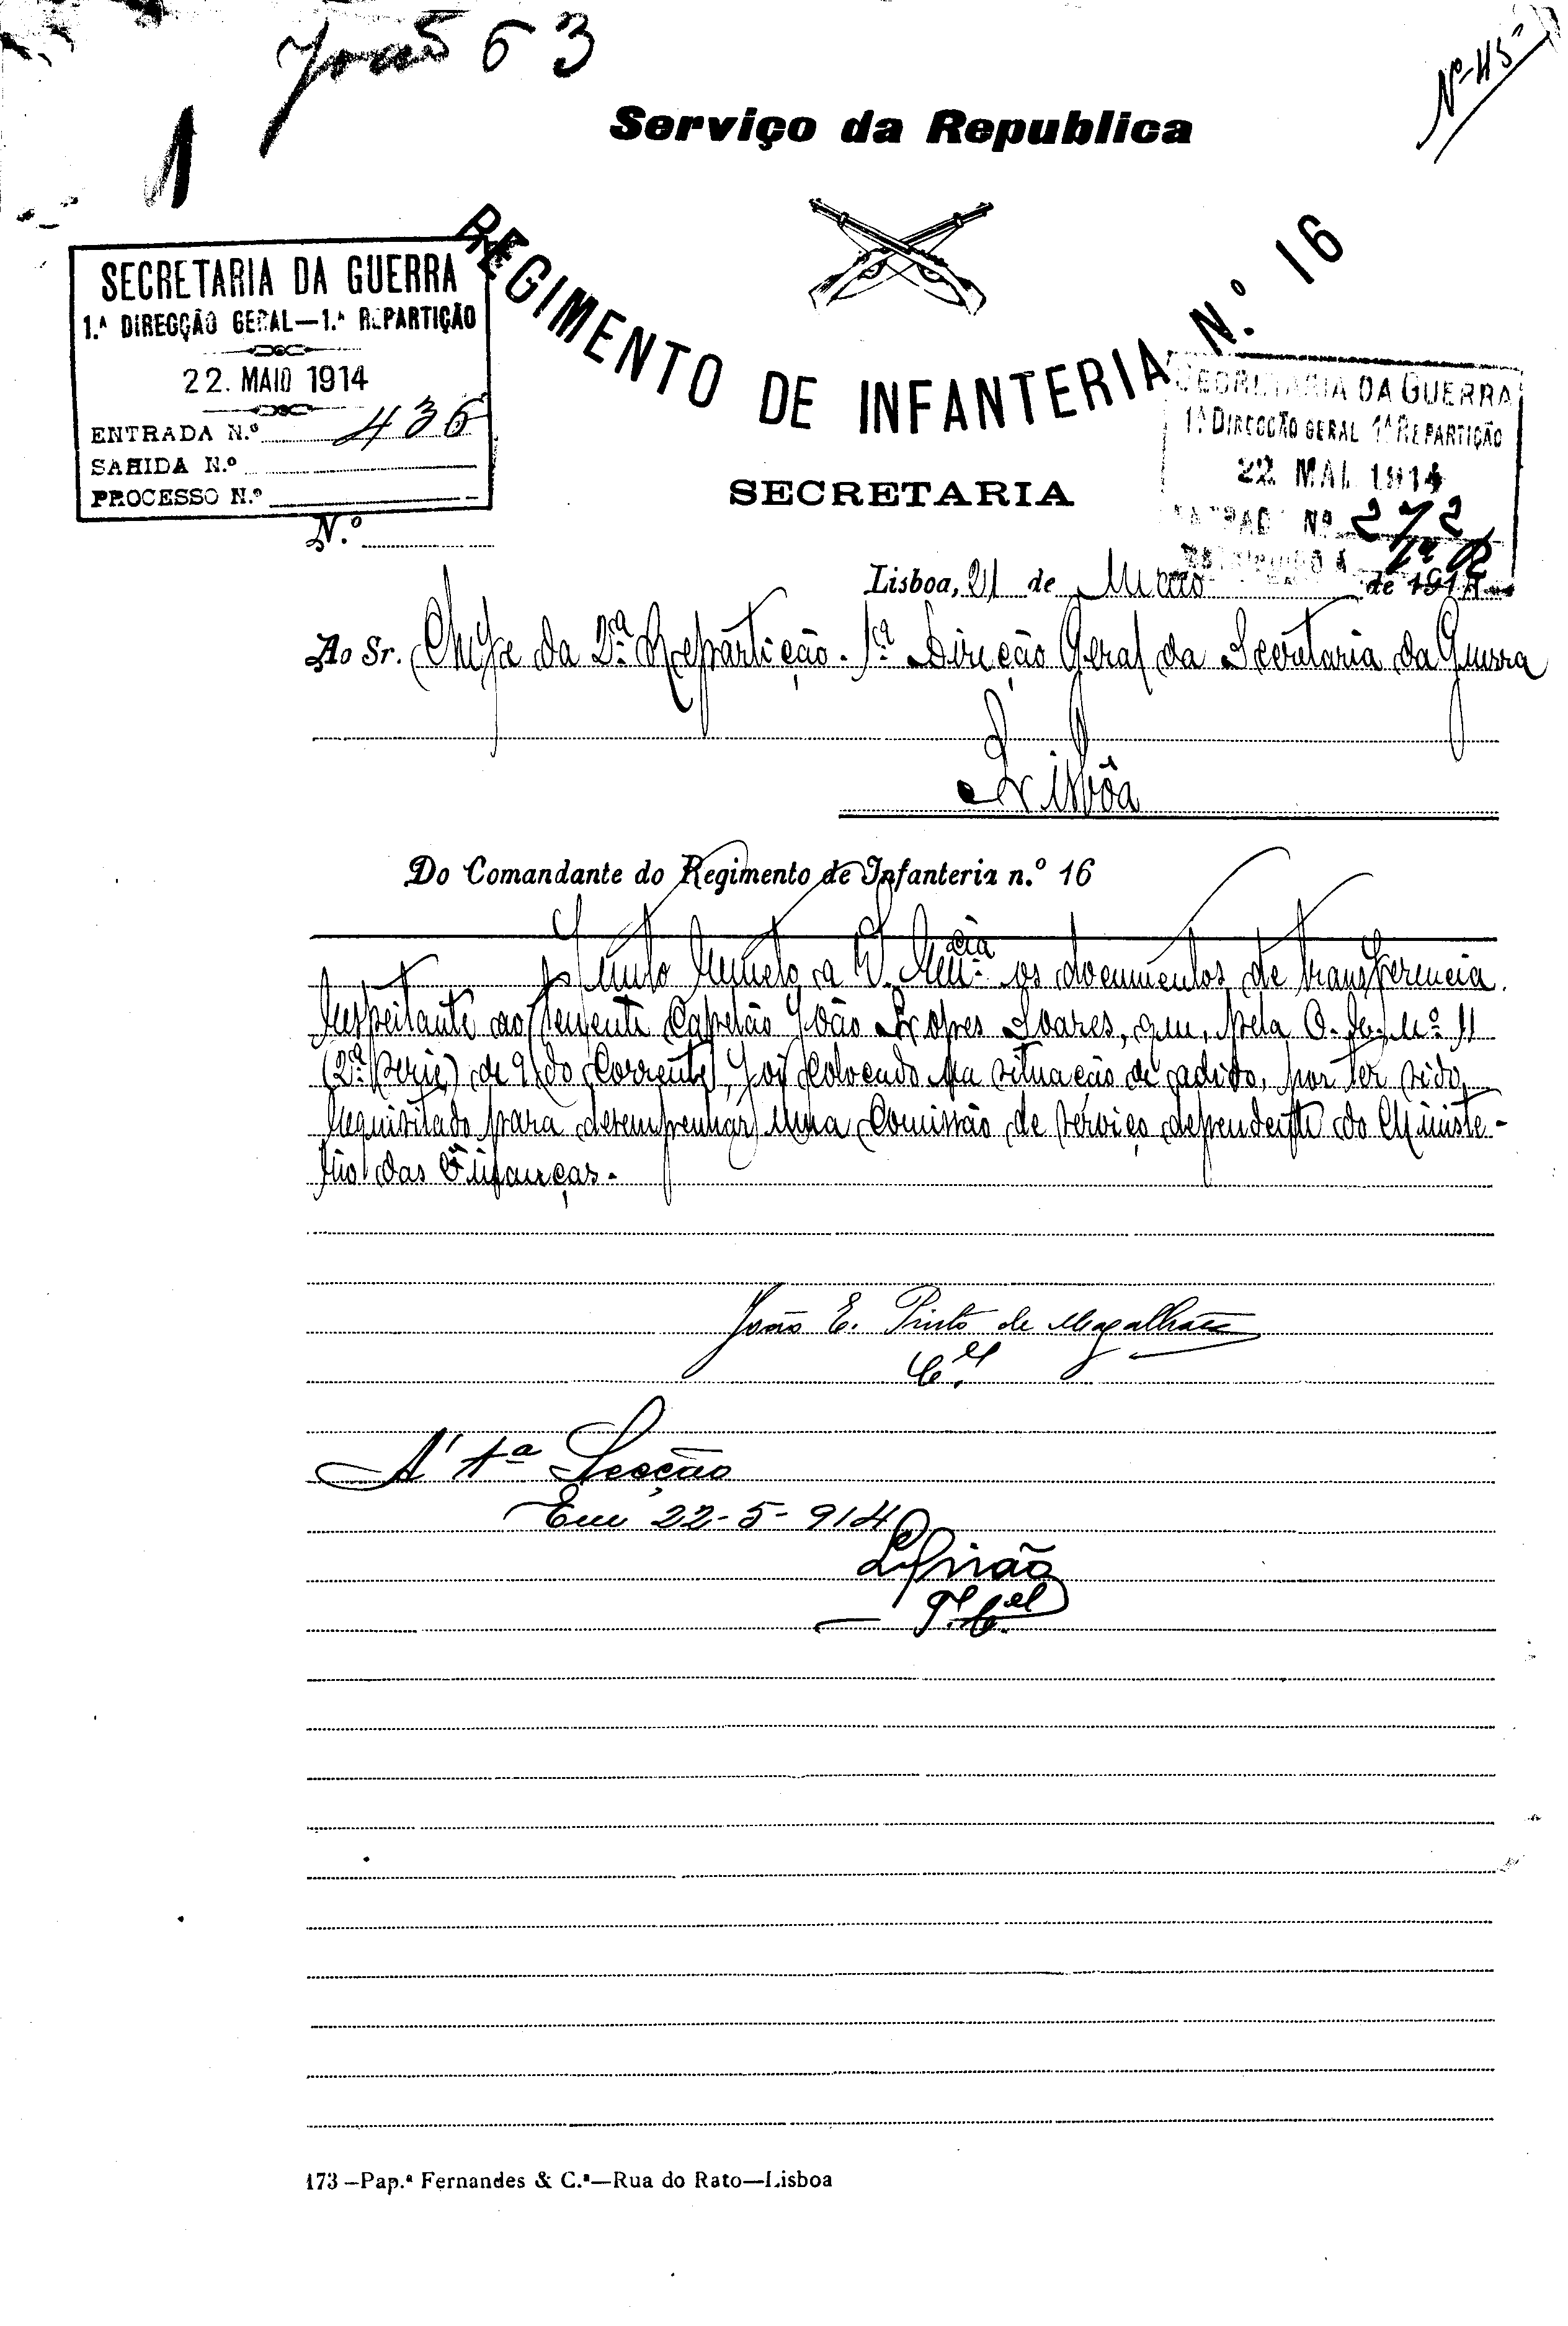 João 63
Nº 45
1
Serviço da Republica
REGIMENTO DE INFANTERIA N.º 16
SECRETARIA DA GUERRA
1.ª DIRECÇÃO GERAL—1.ª REPARTIÇÃO
22. MAIO 1914
ENTRADA N.º 436
SAHIDA N.º
PROCESSO N.º
SECRETARIA DA GUERRA
1ª DIRECÇÃO GERAL 1ª REPARTIÇÃO
22 MAI. 1914
ENTRADA Nº 272
SECRETARIA
N.º
Lisboa, 21 de Maio de 1914
Ao Sr. Chefe da 2.ª Repartição. 1.ª Direcção Geral da Secretaria da Guerra
Lisbôa
Do Comandante do Regimento de Infanteria n.º 16
Junto remeto a V. os documentos de transferencia
respeitante ao tenente capelão João Lopes Soares, que, pela O. do E. n.º 11
(2.ª serie) de 9 do corrente, foi colocado na situação de adido, por ter sido
requisitado para desempenhar uma comissão de serviço dependente do Ministe-
rio das Finanças.
João E. Pinto de Magalhães
C.el
A' 1.ª Secção
Em 22-5-914
T. C.el
173—Pap.ª Fernandes & C.ª—Rua do Rato—Lisboa